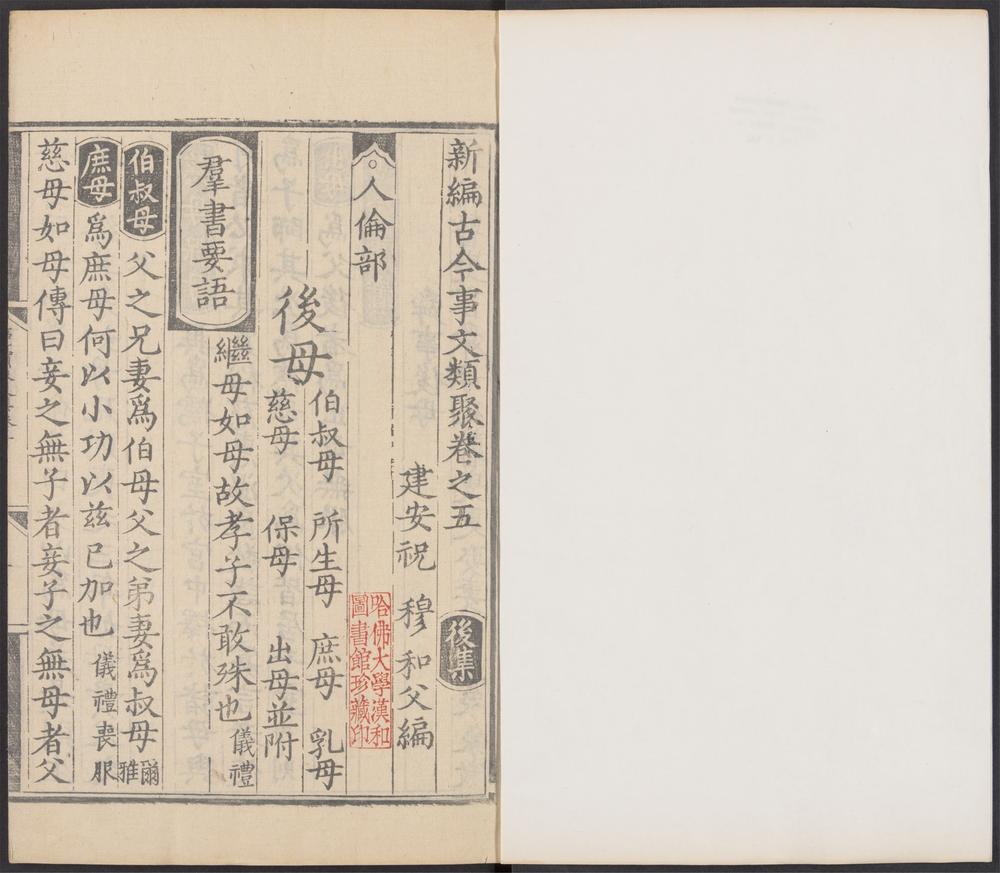 新編古今事文類聚卷之五 後集
建安祝 穆 和父編
哈佛大學漢和
圖書館珍藏印
人倫部
後母 伯叔母 所生母 庶母 乳母
慈母 保母 出母並附
羣書要語
繼母如母故孝子不敢殊也 儀禮
伯叔母 父之兄妻爲伯母父之弟妻爲叔母 爾雅
庶母 爲庶母何以小功以兹已加也 儀禮喪服
慈母如母傳曰妾之無子者妾子之無母者父